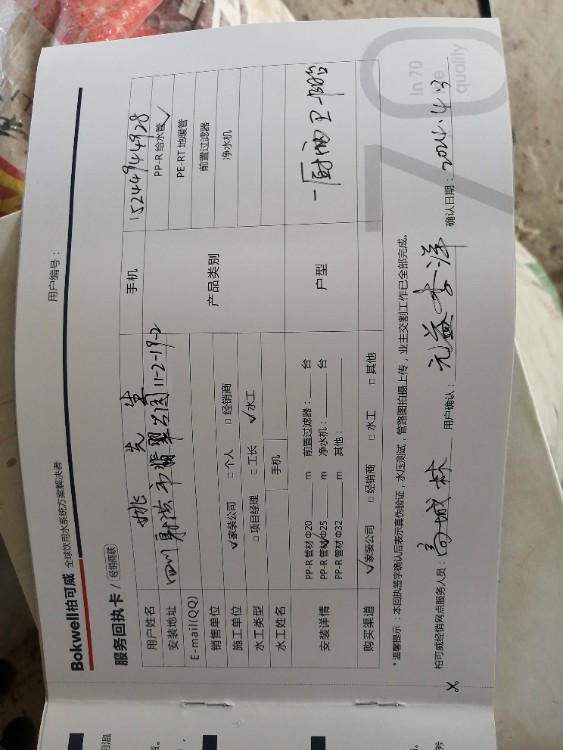 Bokwell柏可威 全球饮用水系统方案解决者
用户编号：
服务回执卡 / 经销商联
用户姓名 姚先生 手机 15244944928
安装地址 四川射洪市翡翠公园11-2-19-2 PP-R 给水管 ✓
E-mail(QQ) 产品类别 PE-RT 地暖管
销售单位 ✓家装公司 □ 个人 □ 经销商 前置过滤器
施工单位 □项目经理 □工长 ✓水工 净水机
水工类型
水工姓名 手机
安装详情 PP-R 管材 Φ20 m 前置过滤器： 台 户型 一厨两卫一阳台
PP-R 管材 Φ25 m 净水机： 台
PP-R 管材 Φ32 m 其他：
购买渠道 ✓家装公司 □ 经销商 □ 水工 □ 其他
*温馨提示：本回执签字确认后表示真伪验证，水压测试，管路图拍摄上传，业主交割工作已全部完成。
柏可威经销网点服务人员： 用户确认： 确认日期：2024.4.13
70
In 70
quality